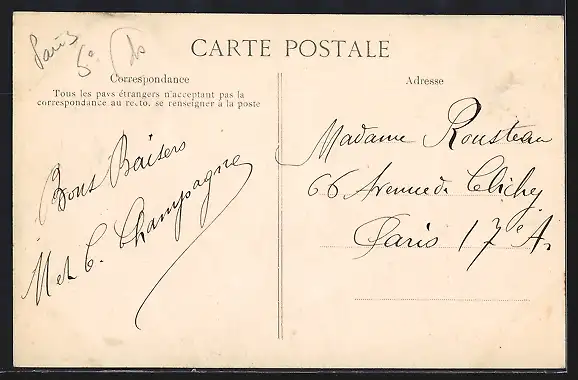 Paris
5e ds
CARTE POSTALE
Correspondance
Tous les pays étrangers n'acceptant pas la
correspondance au recto. se renseigner à la poste
Adresse
Bons Baisers
M et C. Champagne
Madame Rousteau
66 Avenue de Clichy
Paris 17e Ar